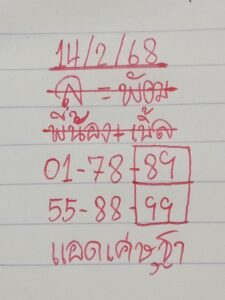 14/2/68
จ = พ้อม
พี่น้อง + เบิ้ล
01-78-89
55-88-99
แอดเศษฐา